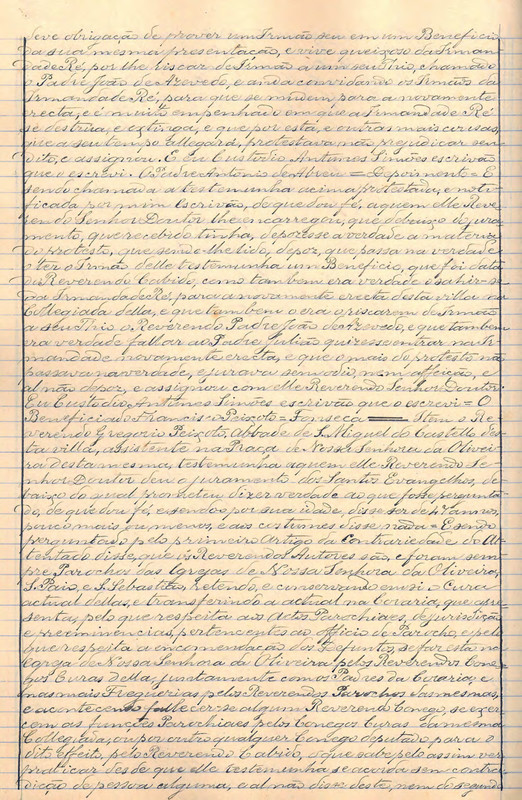 deve obrigação de prover um Irmão seu em um Beneficio
da sua mesma presentação, e vive queixoso da Irman-
dade Ré, por lhe riscar de Irmão a um seu tio, chamado
o Padre João de Azevedo, e anda convidando os Irmãos da
Irmandade Ré, para que se mudem para a novamente
erecta, e é muito empenhado em que a Irmandade Ré
se destrua, e extinga, e que por esta, e outras mais cousas,
que a seu tempo allegará, protestava não prejudicar seu
dito, e assignou. E eu Custodio Antunes Simões escrivão
que o escrevi. O Padre Antonio de Abreu = Depoimento = E
sendo chamada a testemunha acima protestada, e noti-
ficada por mim Escrivão, de que dou fé, a quem elle Reve-
rendo Senhor Doutor lhe encarregou, que debaixo do jura-
mento, que recebido tinha, depozesse a verdade a materia
do protesto, que sendo-lhe lido, depoz, que passa na verdade
o ter o Irmão delle testemunha um Beneficio, que foi data
do Reverendo Cabido, como tambem era verdade o sahir-se
da Irmandade Ré, para a novamente erecta desta villa na
Collegiada della, e que tambem o era o riscarem de Irmão
a seu Thio o Reverendo Padre João de Azevedo, e que tambem
era verdade fallar ao Padre Julião quizesse entrar na Ir-
mandade novamente erecta, e que o mais do protesto não
passava na verdade, e jurava sem odio, nem affeição, e
al não depoz, e assignou com elle Reverendo Senhor Doutor.
Eu Custodio Antunes Simões escrivão que o escrevi = O
Beneficiado Francisco Peixoto = Fonseca = Item o Re-
verendo Gregorio Peixoto, Abbade de S. Miguel do Castello des-
ta villa, assistente na Praça de Nossa Senhora da Olivei-
ra desta mesma, testemunha a quem elle Reverendo Se-
nhor Doutor deu o juramento dos Santos Evangelhos, de-
baixo do qual prometeu dizer verdade ao que fosse pergunta-
do, de que dou fé, e sendo por sua idade, disse ser de 47 annos,
pouco mais ou menos, e aos costumes disse nada = E sendo
perguntado pelo primeiro Artigo da Contrariedade do At-
tentado disse, que os Reverendos Autores são, e foram sem-
pre Parochos das Igrejas de Nossa Senhora da Oliveira,
S. Paio, e S. Sebastião, retendo, e conservando em si o Cura
actual dellas, e transferindo a actual na Coraria, que apre-
senta, pelo que respeita aos actos Parochiaes, de jurisdição
e preeminencias, pertencentes ao officio de Parocho, e pelo
que respeita a encomendação dos Defuntos, se faz esta na
Egreja de Nossa Senhora da Oliveira pelos Reverendos Cone-
gos Curas della, juntamente com os Padres da Coraria, e
nas mais Freguezias pelos Reverendos Parochos das mesmas,
e acontecendo fallecer-se algum Reverendo Conego, se exer-
cem as funções Parochiaes pelos Conegos Curas da mesma
Collegiada, ou por outro qualquer Conego deputado para o
dito effeito, pelo Reverendo Cabido, o que sabe pelo assim ver
praticar desde que elle testemunha se acorda sem contra-
dicção de pessoa alguma, e al não disse deste, nem do segundo